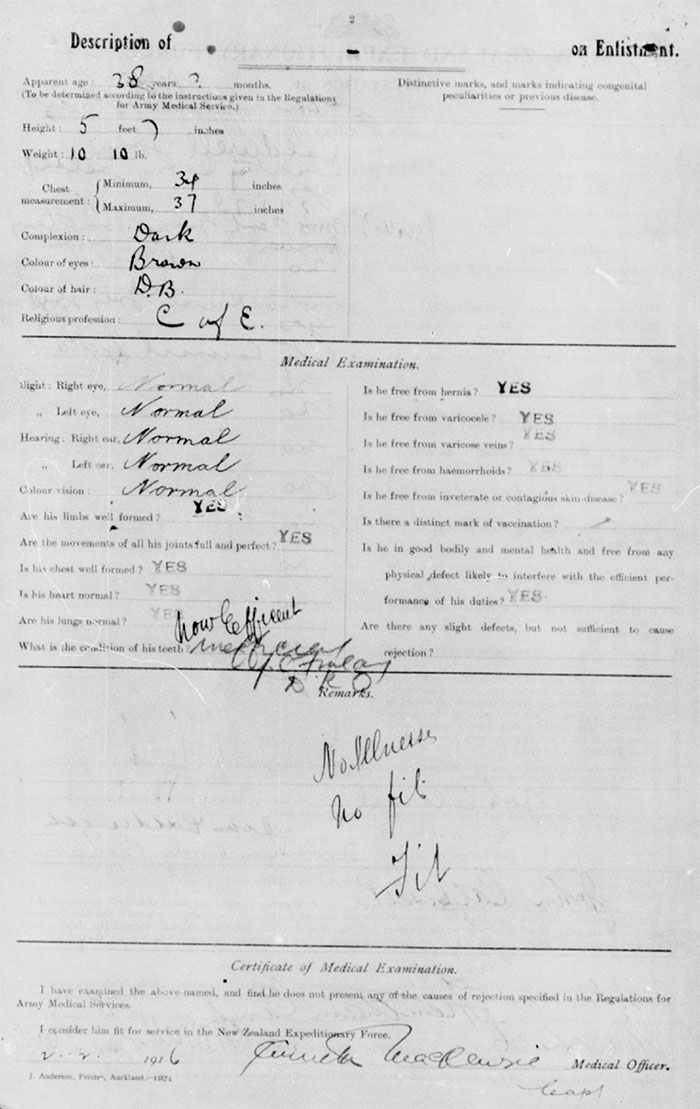 2
Description of - on Enlistment.
Apparent age: 38 years ? months.
(To be determined according to the instructions given in the Regulations
for Army Medical Service.)
Height: 5 feet 7 inches
Weight: 10 10 lb.
Chest measurement: Minimum, 34 inches
Maximum, 37 inches
Complexion: Dark
Colour of eyes: Brown
Colour of hair: D.B.
Religious profession: C of E.
Distinctive marks, and marks indicating congenital
peculiarities or previous disease.
Medical Examination.
Sight: Right eye, Normal
„ Left eye, Normal
Hearing: Right ear, Normal
„ Left ear, Normal
Colour vision: Normal
Are his limbs well formed? YES
Are the movements of all his joints full and perfect? YES
Is his chest well formed? YES
Is his heart normal? YES
Are his lungs normal? YES
now Efficient
What is the condition of his teeth? Inefficient
Is he free from hernia? YES
Is he free from varicocele? YES
Is he free from varicose veins? YES
Is he free from haemorrhoids? YES
Is he free from inveterate or contagious skin-disease? YES
Is there a distinct mark of vaccination?
Is he in good bodily and mental health and free from any
physical defect likely to interfere with the efficient per-
formance of his duties? YES
Are there any slight defects, but not sufficient to cause
rejection?
Remarks.
No Illness
No fit
Fit
Certificate of Medical Examination.
I have examined the above-named, and find he does not present any of the causes of rejection specified in the Regulations for
Army Medical Services.
I consider him fit for service in the New Zealand Expeditionary Force.
2.2. 1916 Kenneth MacKenzie Medical Officer.
Capt
J. Anderson, Printer, Auckland.—11874